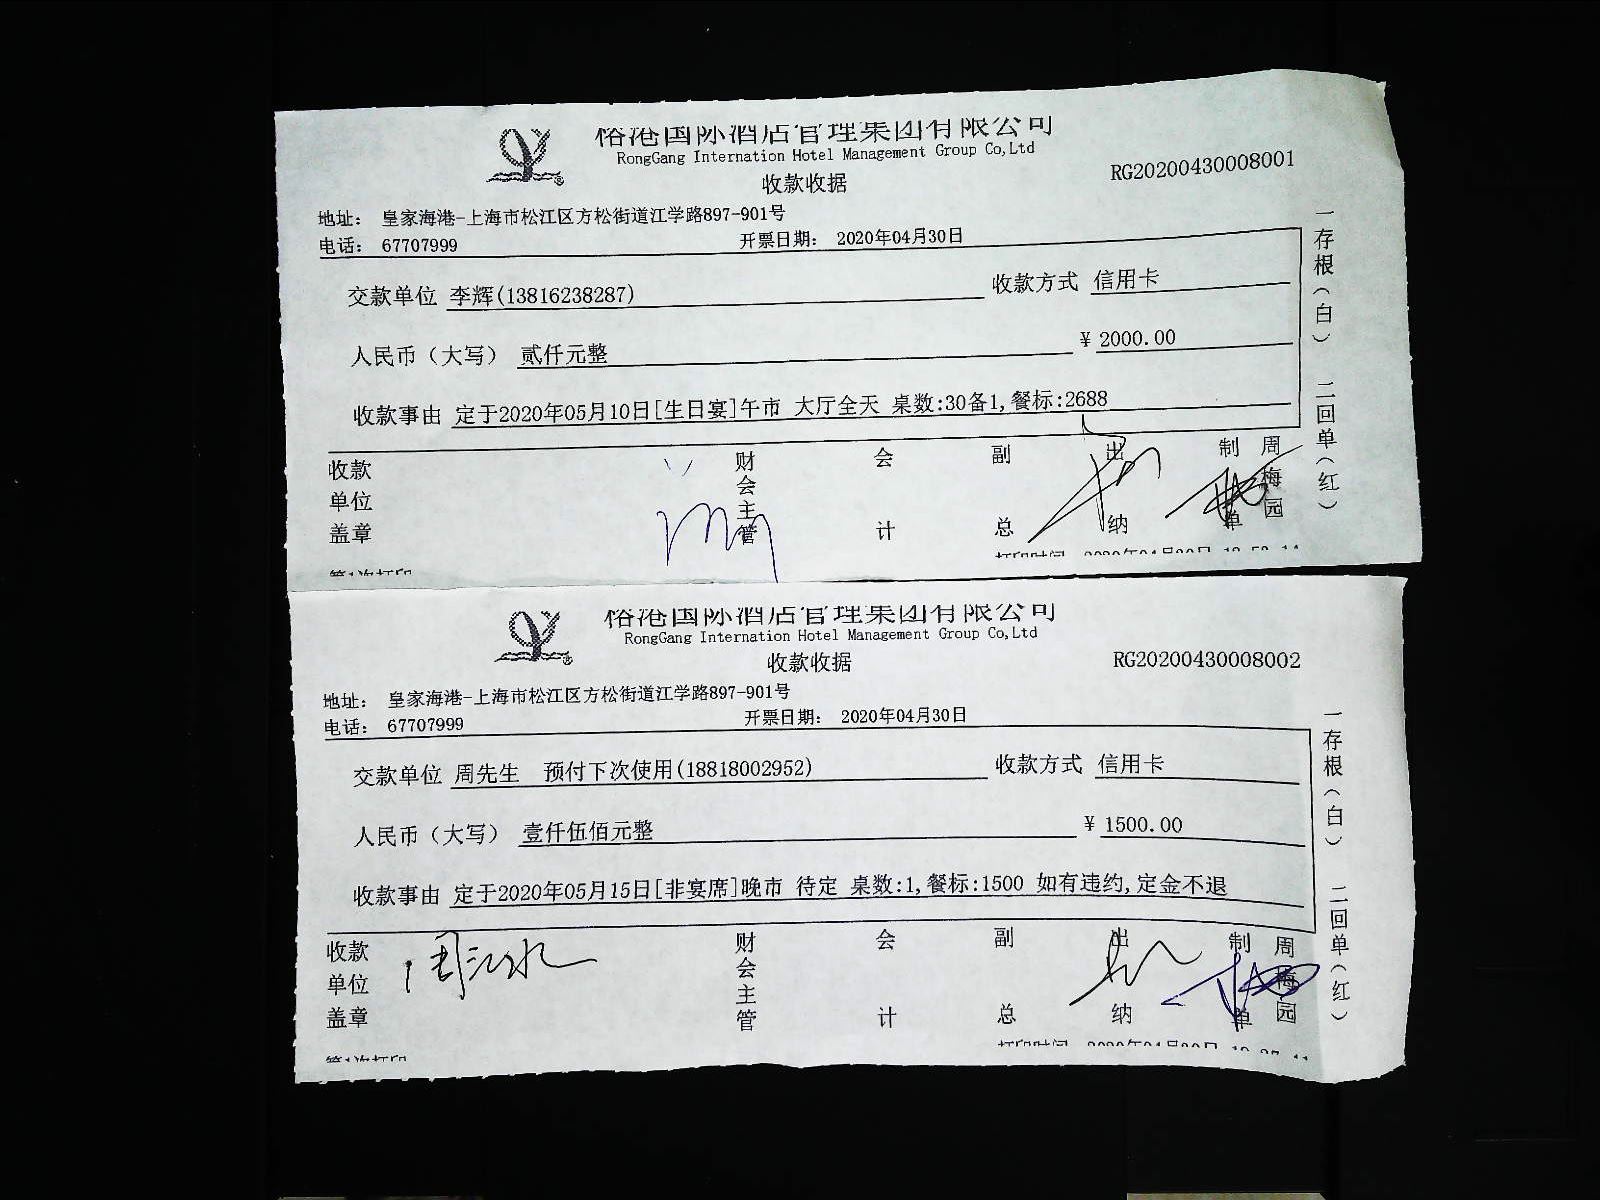 裕港国际酒店管理集团有限公司
RongGang Internation Hotel Management Group Co,Ltd
收款收据
RG20200430008001
地址: 皇家海港-上海市松江区方松街道江学路897-901号
电话: 67707999 开票日期: 2020年04月30日
交款单位 李辉(13816238287) 收款方式 信用卡
人民币（大写） 贰仟元整 ¥ 2000.00
收款事由 定于2020年05月10日[生日宴]午市 大厅全天 桌数:30备1,餐标:2688
收款单位盖章 财会主管 会计 副总 出纳 制单 周梅园
第1次打印 打印时间
一存根(白) 二回单(红)
裕港国际酒店管理集团有限公司
RongGang Internation Hotel Management Group Co,Ltd
收款收据
RG20200430008002
地址: 皇家海港-上海市松江区方松街道江学路897-901号
电话: 67707999 开票日期: 2020年04月30日
交款单位 周先生 预付下次使用(18818002952) 收款方式 信用卡
人民币（大写） 壹仟伍佰元整 ¥ 1500.00
收款事由 定于2020年05月15日[非宴席]晚市 待定 桌数:1,餐标:1500 如有违约,定金不退
收款单位盖章 财会主管 会计 副总 出纳 制单 周梅园
第1次打印 打印时间
一存根(白) 二回单(红)